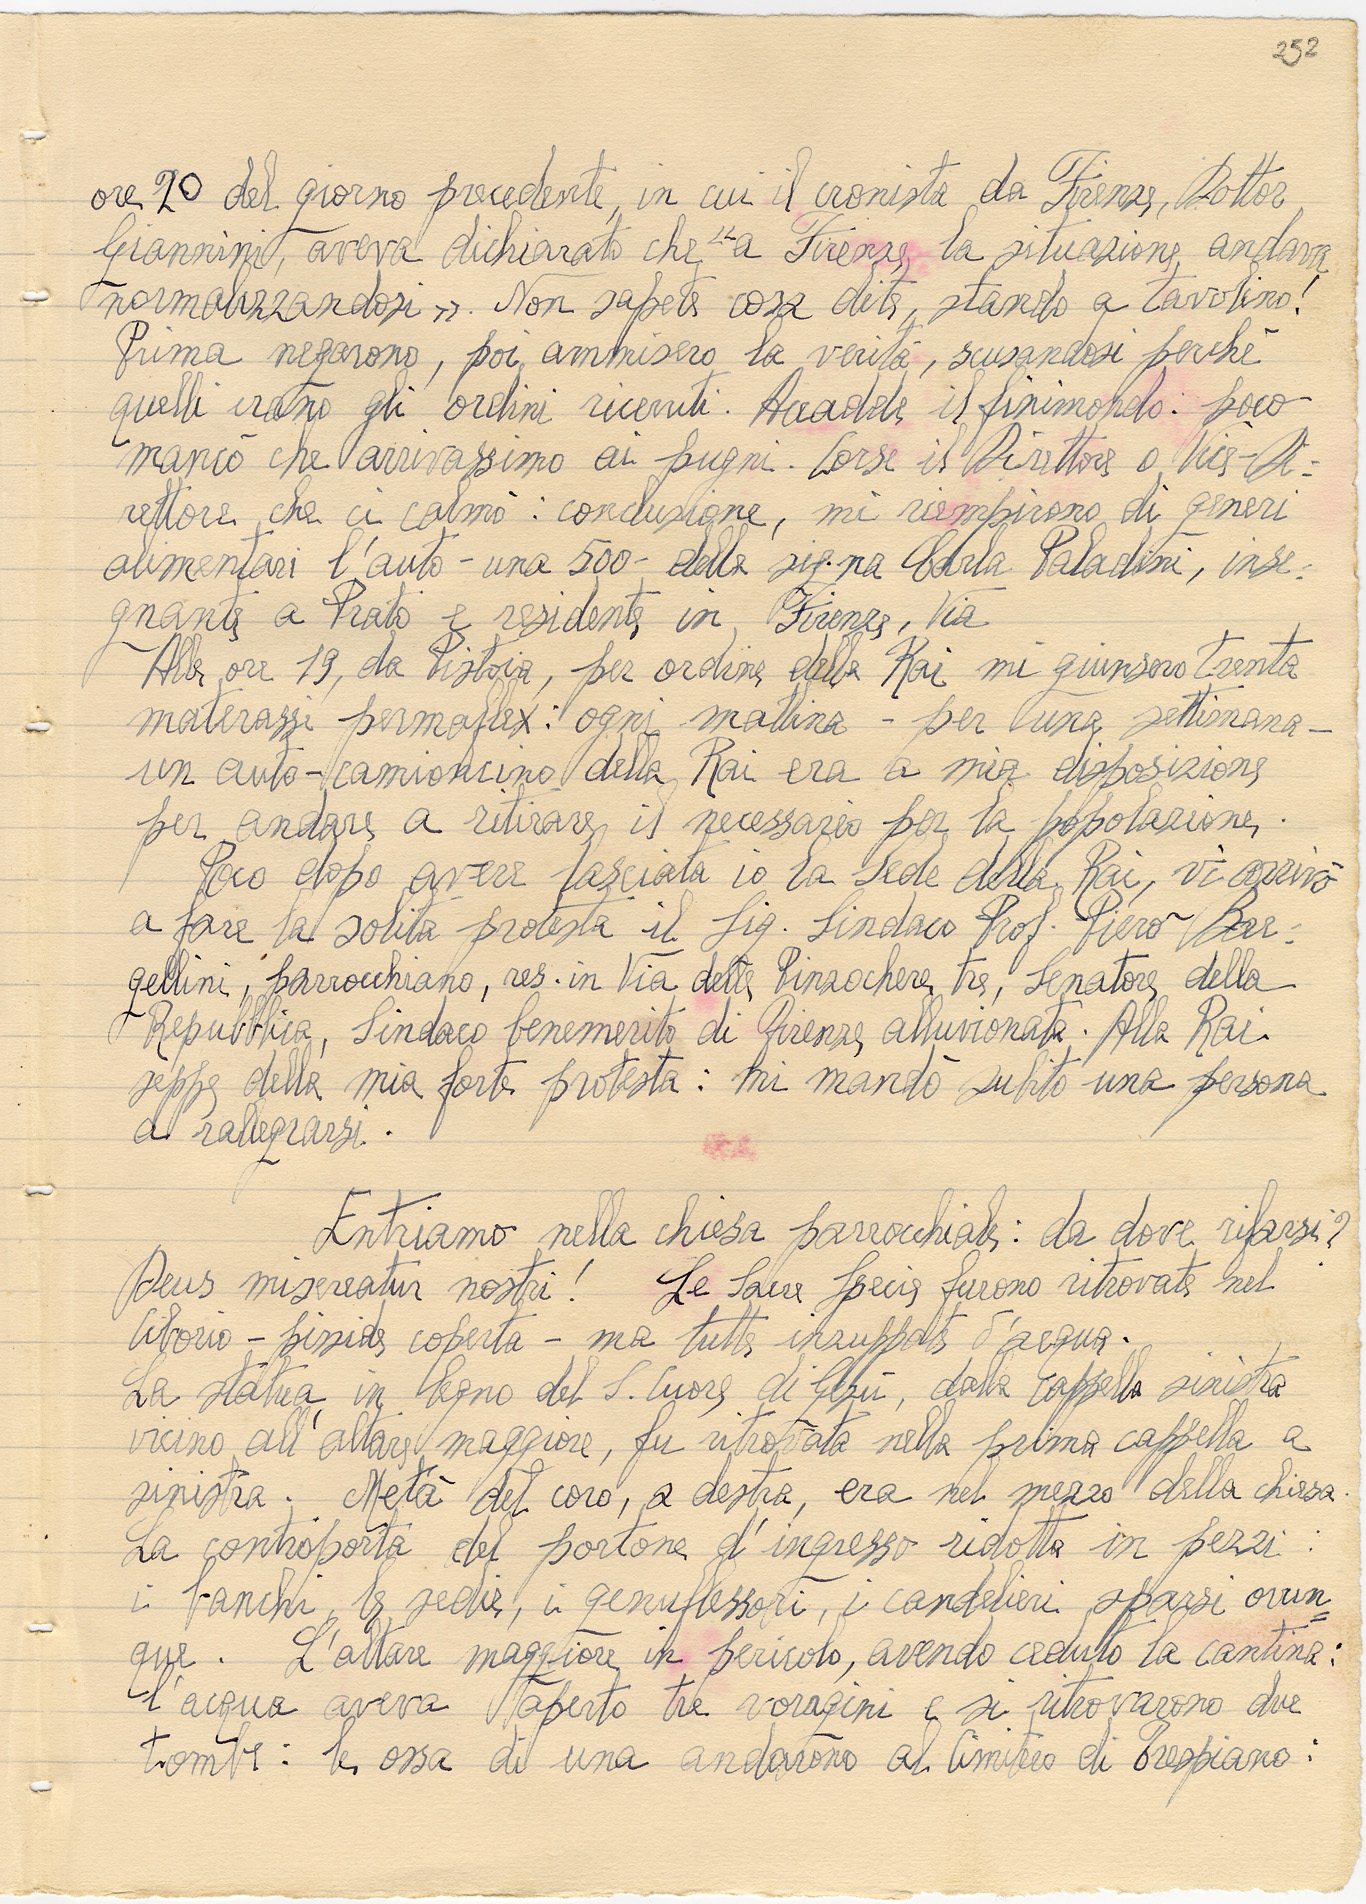 252
ore 20 del giorno precedente, in cui il cronista da Firenze, Dottor
Giannini, aveva dichiarato che "a Firenze la situazione andava
normalizzandosi". Non sapete cosa dite, stando a tavolino!
Prima negarono, poi ammisero la verità, scusandosi perchè
quelli erano gli ordini ricevuti. Accadde il finimondo: poco
mancò che arrivassimo ai pugni. Corse il Direttore o Vice-Di=
rettore che ci calmò: conclusione, mi riempirono di generi
alimentari l'auto - una 500 - della sig.na Carla Paladini, inse=
gnante a Prato e residente in Firenze, Via
Alle ore 19, da Pistoia, per ordine della Rai mi giunsero trenta
materassi permaflex: ogni mattina - per una settimana -
un auto-camioncino della Rai era a mia disposizione
per andare a ritirare il necessario per la popolazione.
Poco dopo avere lasciata io la Sede della Rai, vi arrivò
a fare la solita protesta il Sig. Sindaco Prof. Piero Bar=
gellini, parrocchiano, res. in Via delle Pinzochere tre, Senatore della
Repubblica, Sindaco benemerito di Firenze alluvionata. Alla Rai
seppe della mia forte protesta: mi mandò subito una persona
a rallegrarsi.
Entriamo nella chiesa parrocchiale: da dove rifarsi?
Deus misereatur nostri! Le Sacre Specie furono ritrovate nel
Ciborio - pisside coperta - ma tutte inzuppate d'acqua.
La statua in legno del S. Cuore di Gesù, dalla cappella sinistra
vicino all'altare maggiore, fu ritrovata nella prima cappella a
sinistra. Metà del coro, a destra, era nel mezzo della chiesa.
La controporta del portone d'ingresso ridotta in pezzi:
i banchi, le sedie, i genuflessori, i candelieri sparsi ovun=
que. L'altare maggiore in pericolo, avendo ceduto la cantina:
l'acqua aveva aperto tre voragini e si ritrovarono due
tombe: le ossa di una andarono al Cimitero di Trespiano: